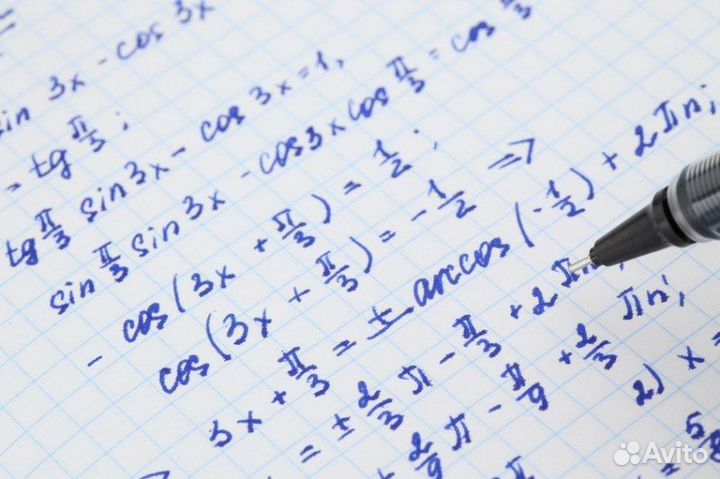 sin 3x - cos 3x
= tg π/3;
tg π/3 sin 3x - cos 3x = 1,
sin π/3 sin 3x - cos 3x cos π/3 = cos π/3
- cos(3x + π/3) = 1/2;
cos(3x + π/3) = -1/2 =>
3x + π/3 = ± arccos(-1/2) + 2πn;
= ± 2/3 π - π/3 + 2πn;
2/9 π - π/9 + 2/3 πn;
2) x =
Avito